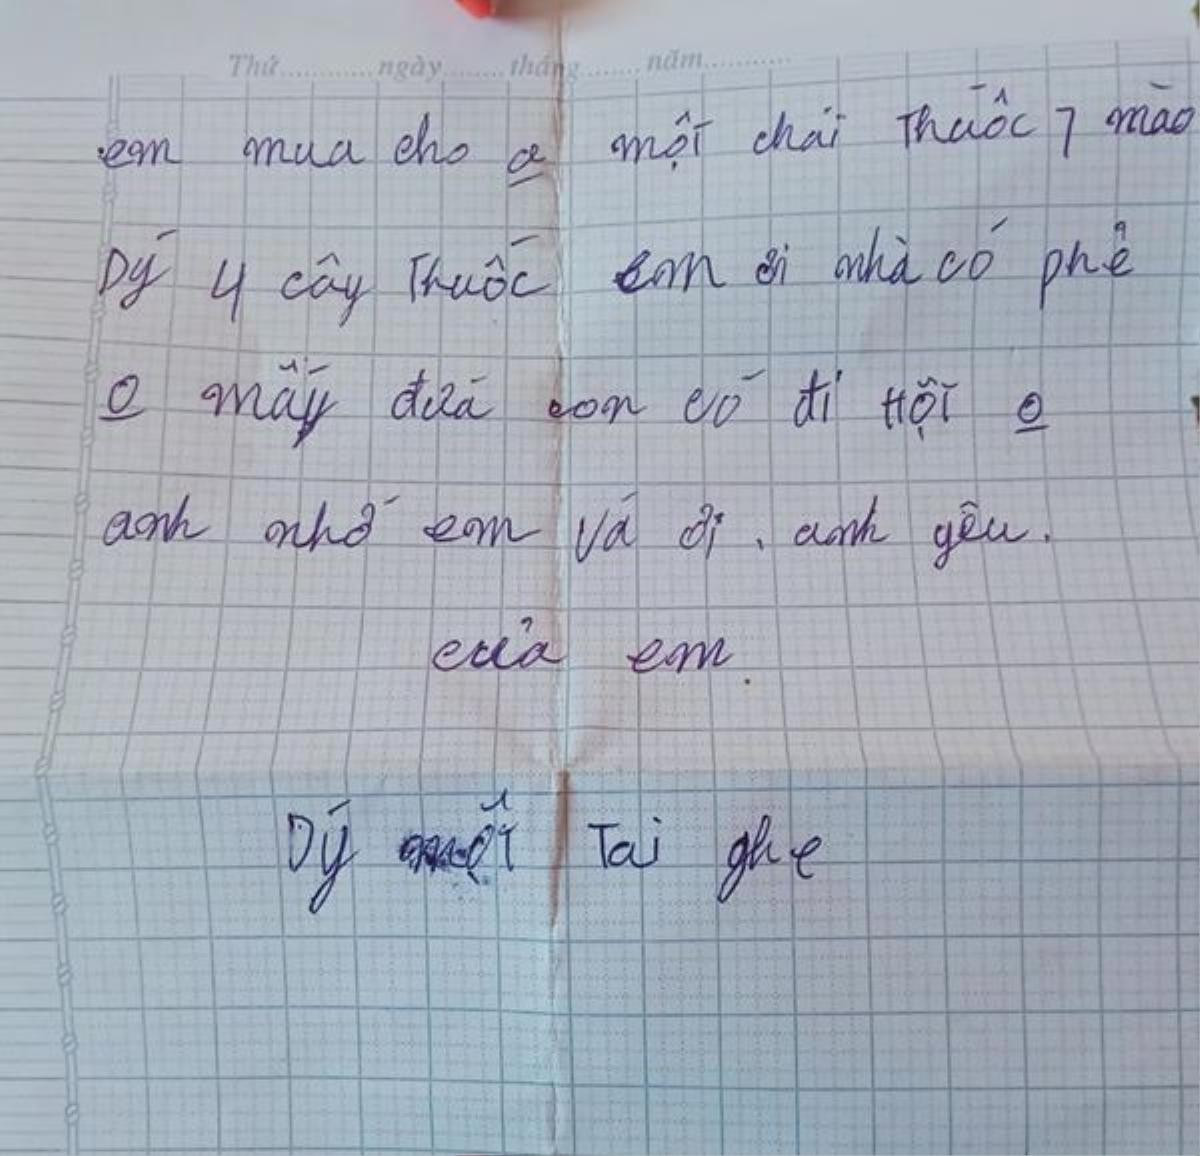 Thứ............ngày........tháng........năm............
em mua cho a một chai Thuốc 7 mào
Dý 4 cây Thuốc em ơi nhà có phê
o mấy đứa con có đi Hội o
anh nhớ em Vá ơi. anh yêu.
của em.
Dý một Tai ghe